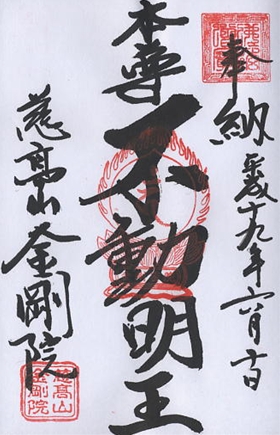 奉納 平成十九年六月十日
本尊
不動明王
慈高山金剛院
慈高山
金剛院